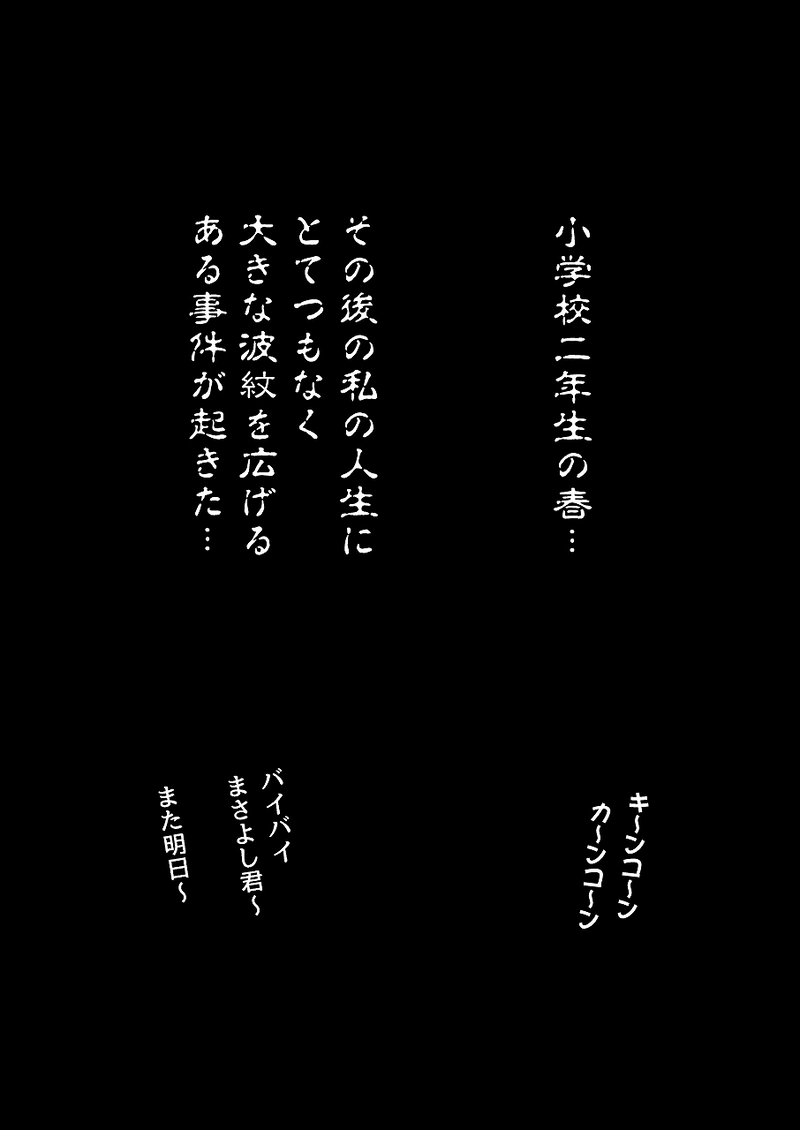 小学校二年生の春…
その後の私の人生に
とてつもなく
大きな波紋を広げる
ある事件が起きた…
キ〜ンコ〜ン
カ〜ンコ〜ン
バイバイ
まさよし君〜
また明日〜